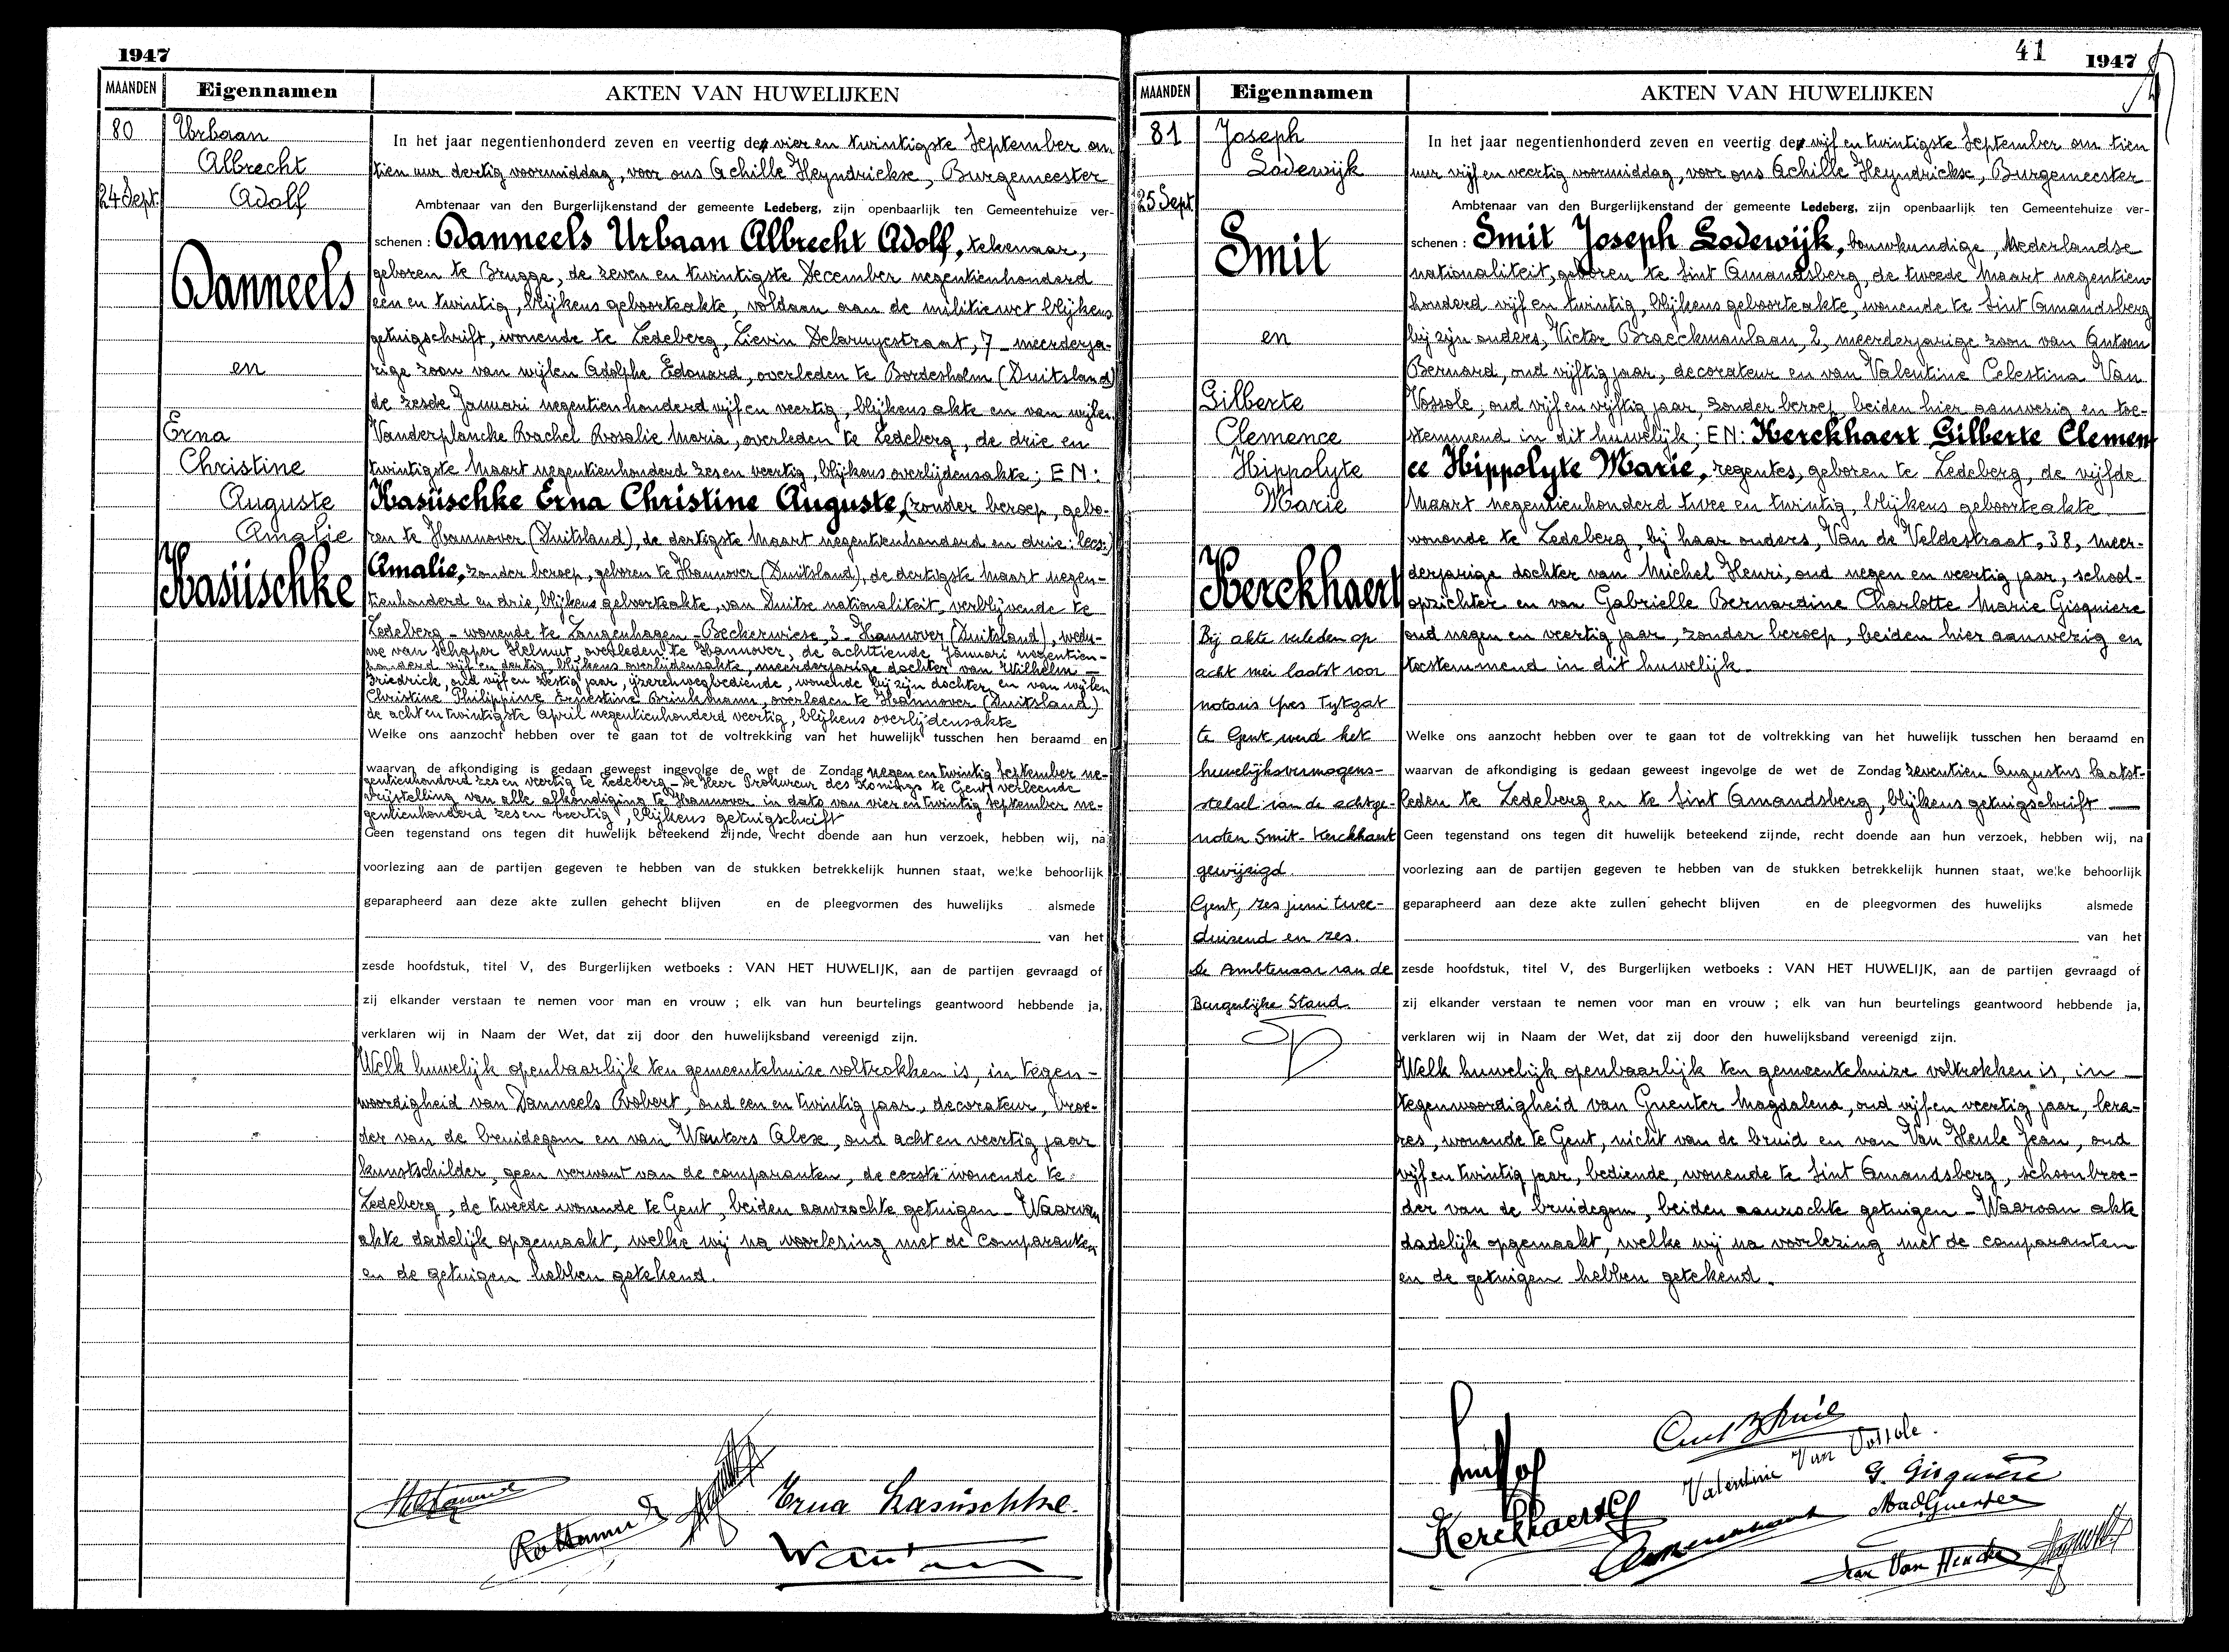 1947
MAANDEN Eigennamen AKTEN VAN HUWELIJKEN
80
24 Sept.
Urbaan
Albrecht
Adolf
Danneels
en
Erna
Christine
Auguste
Amalie
Kasüschke
In het jaar negentienhonderd zeven en veertig den vier en twintigste September om
tien uur dertig voormiddag, voor ons Achille Heyndrickse, Burgemeester
Ambtenaar van den Burgerlijkenstand der gemeente Ledeberg, zijn openbaarlijk ten Gemeentehuize ver-
schenen : Danneels Urbaan Albrecht Adolf, tekenaar,
geboren te Brugge, de zeven en twintigste December negentienhonderd
een en twintig, blijkens geboorteakte, voldaan aan de militiewet blijkens
getuigschrift, wonende te Ledeberg, Lievin Delaruyestraat, 7 - meerderja-
rige zoon van wijlen Adolphe Edouard, overleden te Bordesholm (Duitsland)
de zesde Januari negentienhonderd vijf en veertig, blijkens akte en van wijlen
Vanderplancke Rachel Rosalie Maria, overleden te Ledeberg, de drie en
twintigste Maart negentienhonderd zes en veertig, blijkens overlijdensakte; EN:
Kasüschke Erna Christine Auguste, (zonder beroep, gebo-
ren te Hannover (Duitsland), de dertigste Maart negentienhonderd en drie: lees:)
Amalie, zonder beroep, geboren te Hannover (Duitsland), de dertigste Maart negen-
tienhonderd en drie, blijkens geboorteakte, van Duitse nationaliteit, verblijvende te
Ledeberg - wonende te Langenhagen - Beckerwiese, 3 - Hannover (Duitsland), wedu-
we van Schaper Helmut, overleden te Hannover, de achttiende Januari negentien-
honderd vijf en dertig, blijkens overlijdensakte, meerderjarige dochter van Wilhelm
Friedrick, oud vijf en zestig jaar, ijzerenwegbediende, wonende bij zijn dochter en van wijlen
Christine Philippine Ernestine Brinkmann, overleden te Hannover (Duitsland)
de acht en twintigste April negentienhonderd veertig, blijkens overlijdensakte
Welke ons aanzocht hebben over te gaan tot de voltrekking van het huwelijk tusschen hen beraamd en
waarvan de afkondiging is gedaan geweest ingevolge de wet de Zondag negen en twintig September ne-
gentienhonderd zes en veertig te Ledeberg - De Heer Prokureur des Konings te Gent verleende
vrijstelling van alle afkondiging te Hannover in dato van vier en twintig September ne-
gentienhonderd zes en veertig, blijkens getuigschrift
Geen tegenstand ons tegen dit huwelijk beteekend zijnde, recht doende aan hun verzoek, hebben wij, na
voorlezing aan de partijen gegeven te hebben van de stukken betrekkelijk hunnen staat, welke behoorlijk
geparapheerd aan deze akte zullen gehecht blijven en de pleegvormen des huwelijks alsmede
van het
zesde hoofdstuk, titel V, des Burgerlijken wetboeks : VAN HET HUWELIJK, aan de partijen gevraagd of
zij elkander verstaan te nemen voor man en vrouw ; elk van hun beurtelings geantwoord hebbende ja,
verklaren wij in Naam der Wet, dat zij door den huwelijksband vereenigd zijn.
Welk huwelijk openbaarlijk ten gemeentehuize voltrokken is, in tegen-
woordigheid van Danneels Robert, oud een en twintig jaar, decorateur, broe-
der van de bruidegom en van Wauters Alex, oud acht en veertig jaar
kunstschilder, geen verwant van de comparanten, de eerste wonende te
Ledeberg, de tweede wonende te Gent, beiden aanzochte getuigen - Waarvan
akte dadelijk opgemaakt, welke wij na voorlezing met de comparanten
en de getuigen hebben getekend.
Erna Kasüschke.
41 1947
MAANDEN Eigennamen AKTEN VAN HUWELIJKEN
81
25 Sept
Joseph
Lodewijk
Smit
en
Gilberte
Clemence
Hippolyte
Marie
Kerckhaert
Bij akte verleden op
acht mei laatst voor
notaris Yves Tytgat
te Gent werd het
huwelijksvermogens-
stelsel van de echtge-
noten Smit - Kerckhaert
gewijzigd.
Gent, zes juni twee-
duizend en zes.
De Ambtenaar van de
Burgerlijke Stand.
In het jaar negentienhonderd zeven en veertig den vijf en twintigste September om tien
uur vijf en veertig voormiddag, voor ons Achille Heyndrickse, Burgemeester
Ambtenaar van den Burgerlijkenstand der gemeente Ledeberg, zijn openbaarlijk ten Gemeentehuize ver-
schenen : Smit Joseph Lodewijk, bouwkundige, Nederlandse
nationaliteit, geboren te Sint Amandsberg, de tweede Maart negentien
honderd vijf en twintig, blijkens geboorteakte, wonende te Sint Amandsberg
bij zijn ouders, Victor Braeckmanlaan, 2, meerderjarige zoon van Antoon
Bernard, oud vijftig jaar, decorateur en van Valentine Celestina Van
Vossole, oud vijf en vijftig jaar, zonder beroep, beiden hier aanwezig en toe-
stemmend in dit huwelijk; EN: Kerckhaert Gilberte Clemen
ce Hippolyte Marie, regentes, geboren te Ledeberg, de vijfde
Maart negentienhonderd twee en twintig, blijkens geboorteakte
wonende te Ledeberg, bij haar ouders, Van de Veldestraat, 38, meer-
derjarige dochter van Michel Henri, oud negen en veertig jaar, school-
opzichter en van Gabrielle Bernardine Charlotte Marie Gisquiere
oud negen en veertig jaar, zonder beroep, beiden hier aanwezig en
toestemmend in dit huwelijk.
Welke ons aanzocht hebben over te gaan tot de voltrekking van het huwelijk tusschen hen beraamd en
waarvan de afkondiging is gedaan geweest ingevolge de wet de Zondag zeventien Augustus laatst-
leden te Ledeberg en te Sint Amandsberg, blijkens getuigschrift
Geen tegenstand ons tegen dit huwelijk beteekend zijnde, recht doende aan hun verzoek, hebben wij, na
voorlezing aan de partijen gegeven te hebben van de stukken betrekkelijk hunnen staat, welke behoorlijk
geparapheerd aan deze akte zullen gehecht blijven en de pleegvormen des huwelijks alsmede
van het
zesde hoofdstuk, titel V, des Burgerlijken wetboeks : VAN HET HUWELIJK, aan de partijen gevraagd of
zij elkander verstaan te nemen voor man en vrouw ; elk van hun beurtelings geantwoord hebbende ja,
verklaren wij in Naam der Wet, dat zij door den huwelijksband vereenigd zijn.
Welk huwelijk openbaarlijk ten gemeentehuize voltrokken is, in
tegenwoordigheid van Guenter Magdalena, oud vijf en veertig jaar, lera-
res, wonende te Gent, nicht van de bruid en van Van Heule Jean, oud
vijf en twintig jaar, bediende, wonende te Sint Amandsberg, schoonbroe-
der van de bruidegom, beiden aanzochte getuigen - Waarvan akte
dadelijk opgemaakt, welke wij na voorlezing met de comparanten
en de getuigen hebben getekend.
Valentine Van Vossole.
G. Gisquière
Mad Guenter
Kerckhaert G